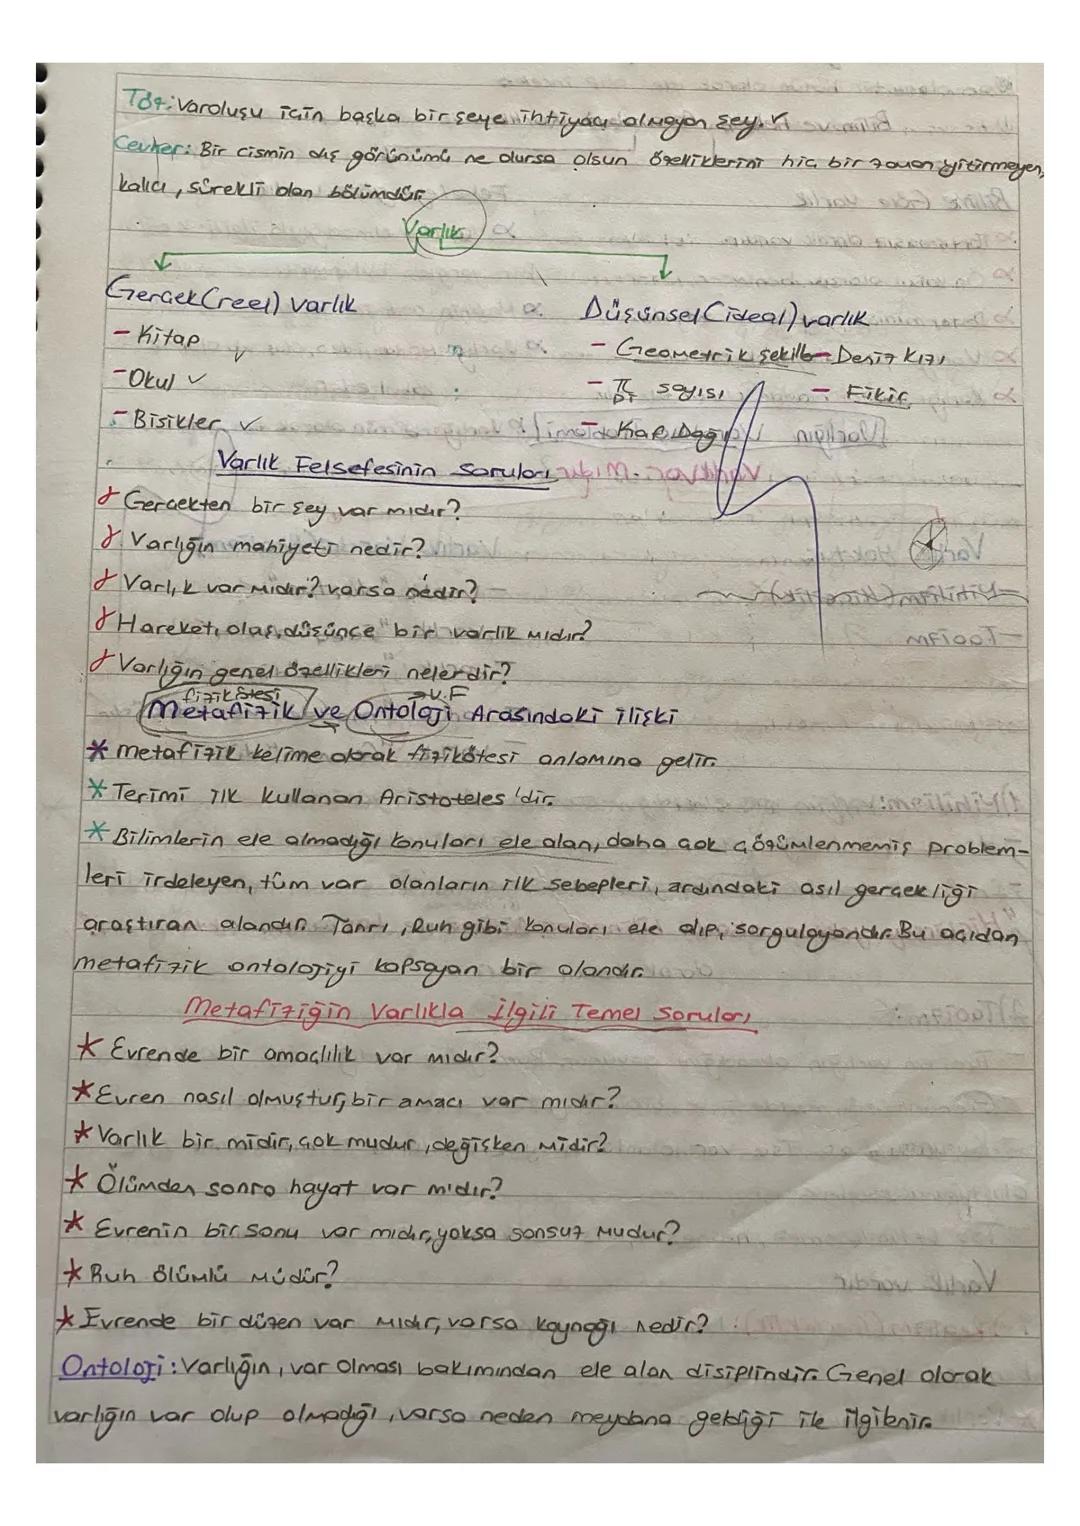 Töz: Varoluşu için başka bir şeye ihtiyacı olmayan şey.
Cevher: Bir cismin dış görünümü ne olursa olsun özelliklerini hiç bir zaman yitirmeyen,
kalıcı, sürekli olan bölümdür.
Varlık
Gerçek (reel) varlık
- Kitap
- Okul ✓
- Bisiklet ✓
Düşünsel (ideal) varlık
- Geometrik şekiller - Deniz Kızı
- π sayısı - Fikir
pi
- Kaf Dağı
Varlık Felsefesinin Soruları
Gerçekten bir şey var mıdır?
Varlığın mahiyeti nedir?
Varlık var mıdır? varsa nedir?
Hareket, olay, düşünce bir varlık mıdır?
Varlığın genel özellikleri nelerdir?
fizik ötesi → V.F
Metafizik ve Ontoloji Arasındaki ilişki
* metafizik kelime olarak fizikötesi anlamına gelir.
* Terimi ilk kullanan Aristoteles'dir.
* Bilimlerin ele almadığı konuları ele alan, daha çok çözümlenmemiş problem-
leri irdeleyen, tüm var olanların ilk sebepleri, ardındaki asıl gerçekliği
araştıran alandır. Tanrı, Ruh gibi konuları ele alıp, sorgulayandır. Bu açıdan
metafizik ontolojiyi kapsayan bir alandır.
Metafiziğin Varlıkla İlgili Temel Soruları
* Evrende bir amaçlılık var mıdır?
* Evren nasıl olmuştur, bir amacı var mıdır?
* Varlık bir midir, çok mudur, değişken midir?
* Ölümden sonra hayat var mıdır?
* Evrenin bir sonu var mıdır, yoksa sonsuz mudur?
* Ruh ölümlü müdür?
* Evrende bir düzen var mıdır, varsa kaynağı nedir?
Ontoloji: Varlığın, var olması bakımından ele alan disiplindir. Genel olarak
varlığın var olup olmadığı, varsa neden meydana geldiği ile ilgilenir.